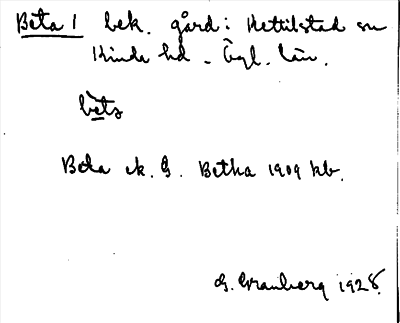 Beta 1 bek. gård: Kettilstad sn
Kinda hd. Ögl. län.
bèta
Beta ek. G. Betha 1909 kb.
G. Granberg 1928.